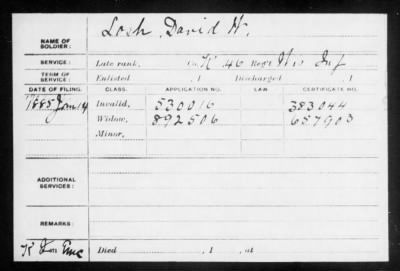 NAME OF SOLDIER: Losh, David W.
SERVICE: Late rank, Co. K 46 Reg't Inf
TERM OF SERVICE: Enlisted , 1 Discharged , 1
DATE OF FILING. CLASS. APPLICATION NO. LAW. CERTIFICATE NO.
1885 Jan 14 Invalid, 530016 383044
Widow, 892506 657903
Minor,
ADDITIONAL SERVICES:
REMARKS:
Died , 1 , at